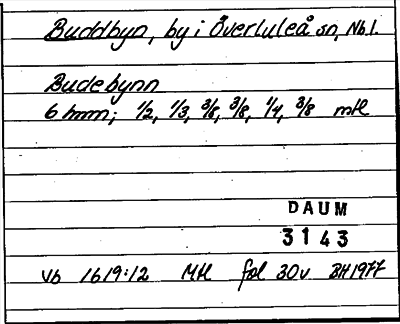 Buddbyn, by i Överluleå sn, Nbl.
Budebynn
6 hmn; 1/2, 1/3, 3/8, 3/8, 1/4, 3/8 mtl
DAUM
3143
Vb 1619:12 Mtl fol 30v BH1977